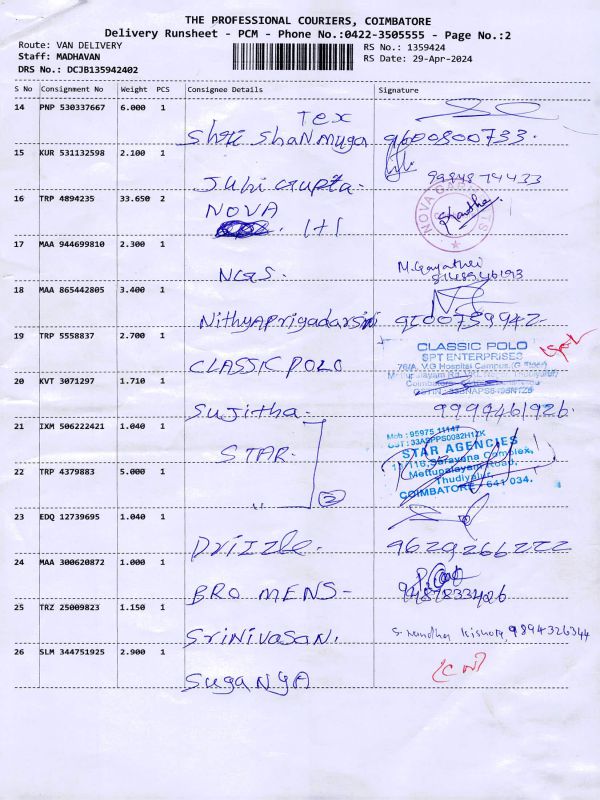 THE PROFESSIONAL COURIERS, COIMBATORE
Delivery Runsheet - PCM - Phone No.:0422-3505555 - Page No.:2
Route: VAN DELIVERY
RS No.: 1359424
Staff: MADHAVAN
RS Date: 29-Apr-2024
DRS No.: DCJB135942402
S No Consignment No Weight PCS Consignee Details Signature
14 PNP 530337667 6.000 1
Tex
Shri Shanmuga 9600800733.
15 KUR 531132598 2.100 1
Juhi Gupta. 9994874433
16 TRP 4894235 33.650 2
NOVA
1+1
NOVA
17 MAA 944699810 2.300 1
NGS. M. Gayathri
18 MAA 865442805 3.400 1
Nithyapriyadarsini
19 TRP 5558837 2.700 1
CLASSIC POLO
CLASSIC POLO
SPT ENTERPRISES
76/A, V.G Hospital Campus, (G.Floor)
20 KVT 3071297 1.710 1
Sujitha. 9994461926.
21 IXM 506222421 1.040 1
STAR.
Mob : 95975 11147
GST : 33ASPPS0082H1ZK
STAR AGENCIES
Saravana Complex,
Mettupalayam Road,
Thudiyalur,
COIMBATORE - 641 034.
22 TRP 4379883 5.000 1
,, 2
23 EDQ 12739695 1.040 1
Drizzle. 9629266222
24 MAA 300620872 1.000 1
BRO MENS - 9487833426
25 TRZ 25009823 1.150 1
Srinivasan. S. Nandha Kishore, 9894326344
26 SLM 344751925 2.900 1
SUGANYA